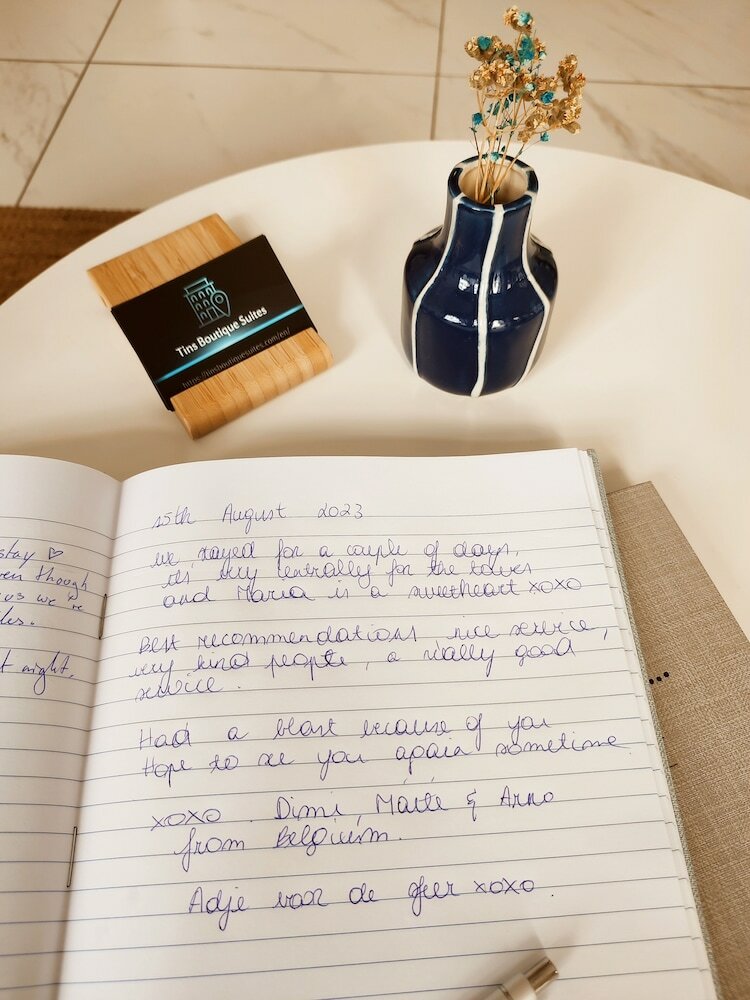 Tins Boutique Suites
https://tinsboutiquesuites.com/en/
stay ♡
even though
us we're
night.
15th August 2023
we stayed for a couple of days,
it's very centrally for the
and Maria is a sweetheart xoxo
Best recommendations, nice service,
very kind people, a really good
service.
Had a blast because of you
Hope to see you again sometime
xoxo. Dimi, & Arno
from Belgium.
Adje voor de sfeer xoxo.